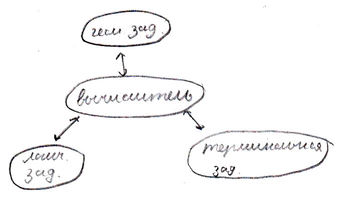 геом зад.
вычислитель
логич.
зад.
терминальная
зад.